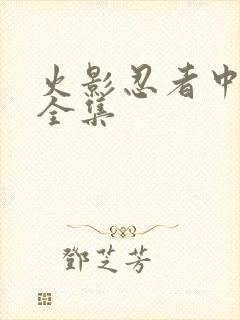 火影忍者中
全集
鄧芝芳